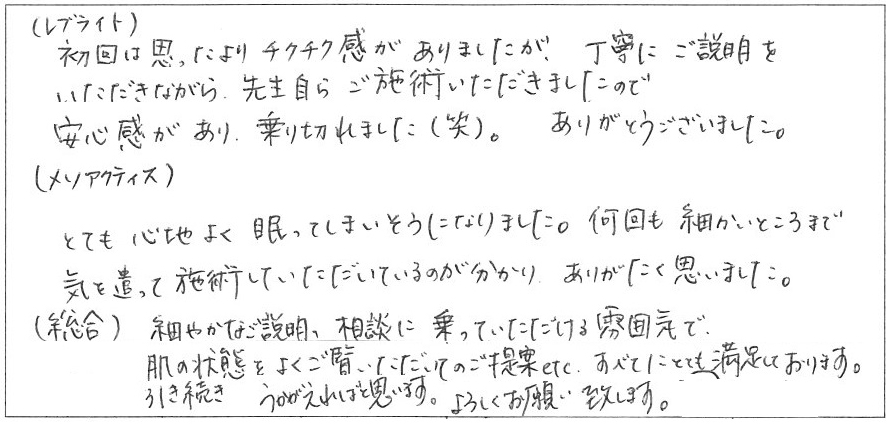 (レブライト)
初回は思ったよりチクチク感がありましたが、丁寧にご説明を
いただきながら、先生自らご施術いただきましたので
安心感があり、乗り切れました(笑)。 ありがとうございました。
(メソアクティス)
とても心地よく眠ってしまいそうになりました。何回も細かいところまで
気を遣って施術していただいているのが分かり、ありがたく思いました。
(総合) 細やかなご説明、相談に乗っていただける雰囲気で、
肌の状態をよくご覧いただいてのご提案etc. すべてにとても満足しております。
引き続き うかがえればと思います。よろしくお願い致します。